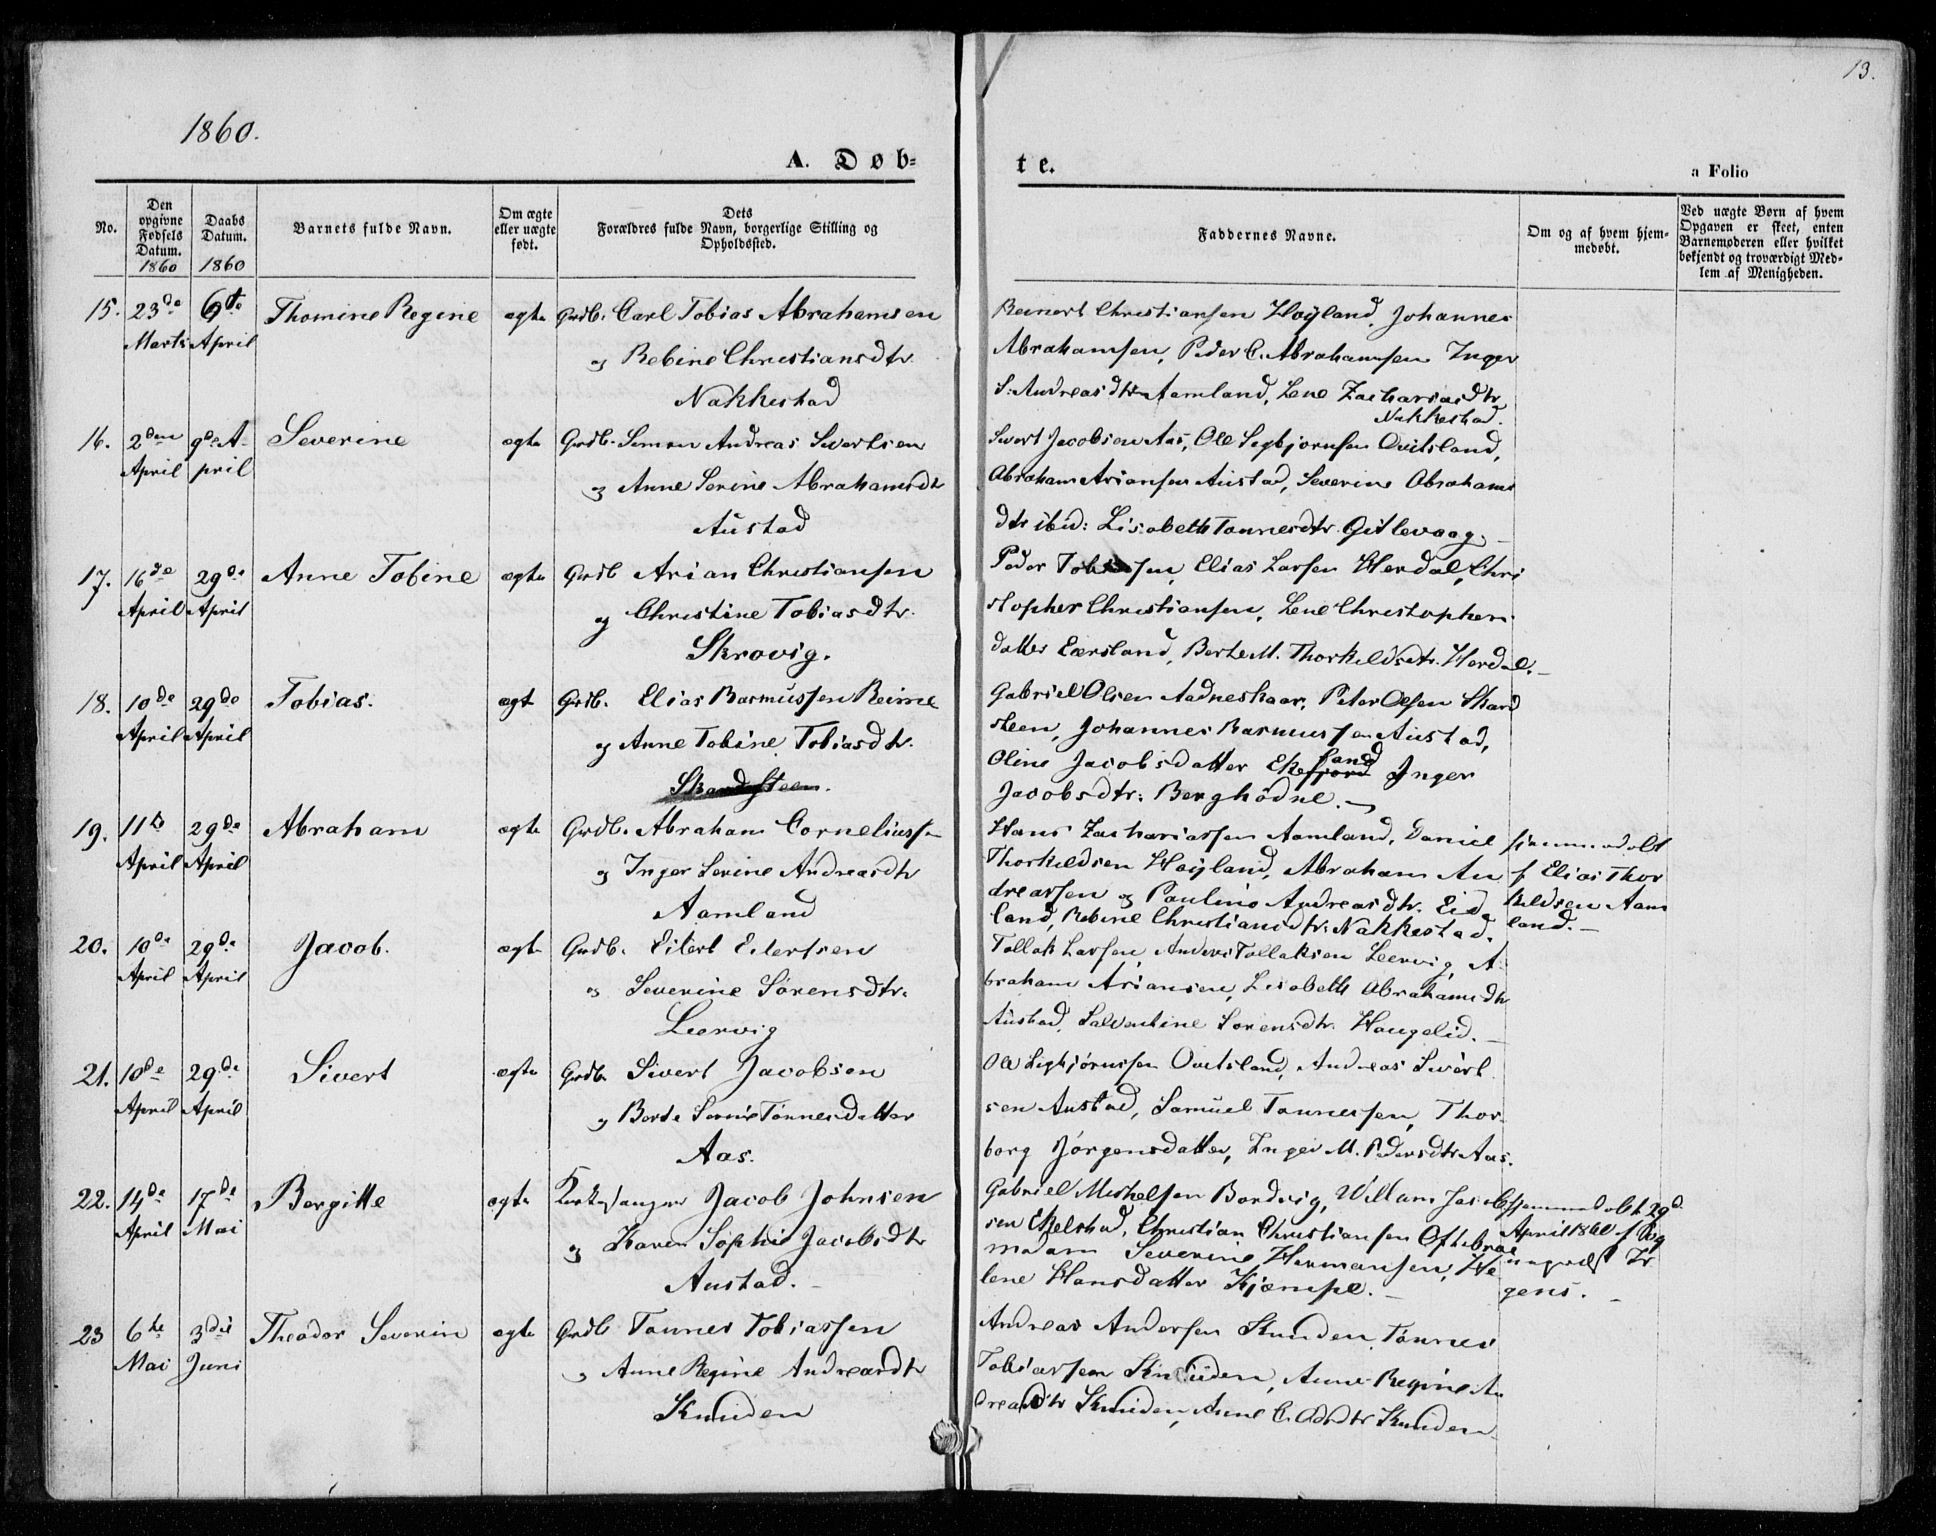 13.
1860.
A. Døb=
te.
a Folio
No.
Den opgivne Fødsels Datum. 1860
Daabs Datum. 1860
Barnets fulde Navn.
Om ægte eller uægte født.
Dets Forældres fulde Navn, borgerlige Stilling og Opholdssted.
Faddernes Navne.
Om og af hvem hjem=
medøbt.
Ved uægte Børn af hvem
Opgaven er skeet, enten
Barnemøderen eller hvilket
bekjendt og troværdigt Med=
lem af Menigheden.
15. 23de 9de Thomine Regine ægte Grdb. Carl Tobias Abrahamsen
Marts April og Rebine Christiansdtr.
Nakkestad
Reinert Christiansen Høyland, Johannes
Abrahamsen, Peder C. Abrahamsen Inger
S. Andreasdtr Aamland, Lene Zachariasdtr
Nakkestad.
16. 2den 9de A- Severine ægte Grdb. Simon Andreas Sivertsen
April pril og Anne Serine Abrahamsdtr
Austad
Sivert Jacobsen Aas, Ole Sigbjørnsen Qvitsland,
Abraham Ariansen Austad, Severine Abrahams
dtr ibid: Lisabeth Tønnesdtr. Gitlevaag.
17. 16de 29de Anne Tobine ægte Grdb Arian Christiansen
April April og Christine Tobiasdtr.
Skrovig.
Peder Tobiassen, Elias Larsen Herdal, Chri
stopher Christiansen, Lene Christophers
datter Eersland, Berte M. Thorkildsdtr. Herdal.
18. 10de 29de Tobias. ægt Grdb. Elias Rasmussen Reime
April April og Anne Tobine Tobiasdtr.
Skardsteen.
Gabriel Olsen Aadneskaar, Peter Olsen Skard
steen, Johannes Rasmussen Austad,
Oline Jacobsdatter Ekefjord land Inger
Jacobsdtr. Berghødne.
19. 11te 29de Abraham ægte Grdb. Abraham Corneliussn
April April og Inger Serine Andreasdtr
Aamland
Hans Zachariassen Aamland, Daniel hjemmedøbt
Thorkildsen Høyland, Abraham An f Elias Thor
dreassen og Pauline Andreasdtr. Eid kildsen Aam
land, Rebine Christiansdtr. Nakkestad. land.
20. 10de 29de Jacob. ægte Grdb. Eilert Eilertsen
April April og Severine Sørensdtr.
Leervig
Tollak Larsen, Anders Tollaksen Leervig, A-
braham Ariansen, Lisabeth Abrahamsdtr
Austad, Salventine Sørensdtr. Haugelid.
21. 10de 29de Sivert ægte Grdb. Sivert Jacobsen
April April og Berte Serine Tønnesdatter
Aas.
Ole Sigbjørnssen Qvitsland, Andreas Sivert
sen Austad, Samuel Tønnessen, Thor-
borg Jørgensdatter, Inger M. Pedersdtr Aas.
22. 14de 17de Bergitte ægte Kirkesanger Jacob Johnsen
April Mai og Karen Sophie Jacobsdtr
Austad.
Gabriel Michelsen Bordvig, Willam Jacob hjemmedøbt 29d.
sen Ekelstad, Christian Christiansen Oftebroe April 1860 f Sog
madam Severine Hermansen, He nepræst Ir
lene Hansdatter Kjæmpe. gens.
23 6te 3die Theodor Severin ægte Grdb Tønnes Tobiassen
Mai Juni og Anne Regine Andreasdtr
Knuden
Andreas Andersen Knuden, Tønnes
Tobiassen Knuden, Anne Regine An
dreasdtr Knuden, Anne C. Odsdtr Knuden